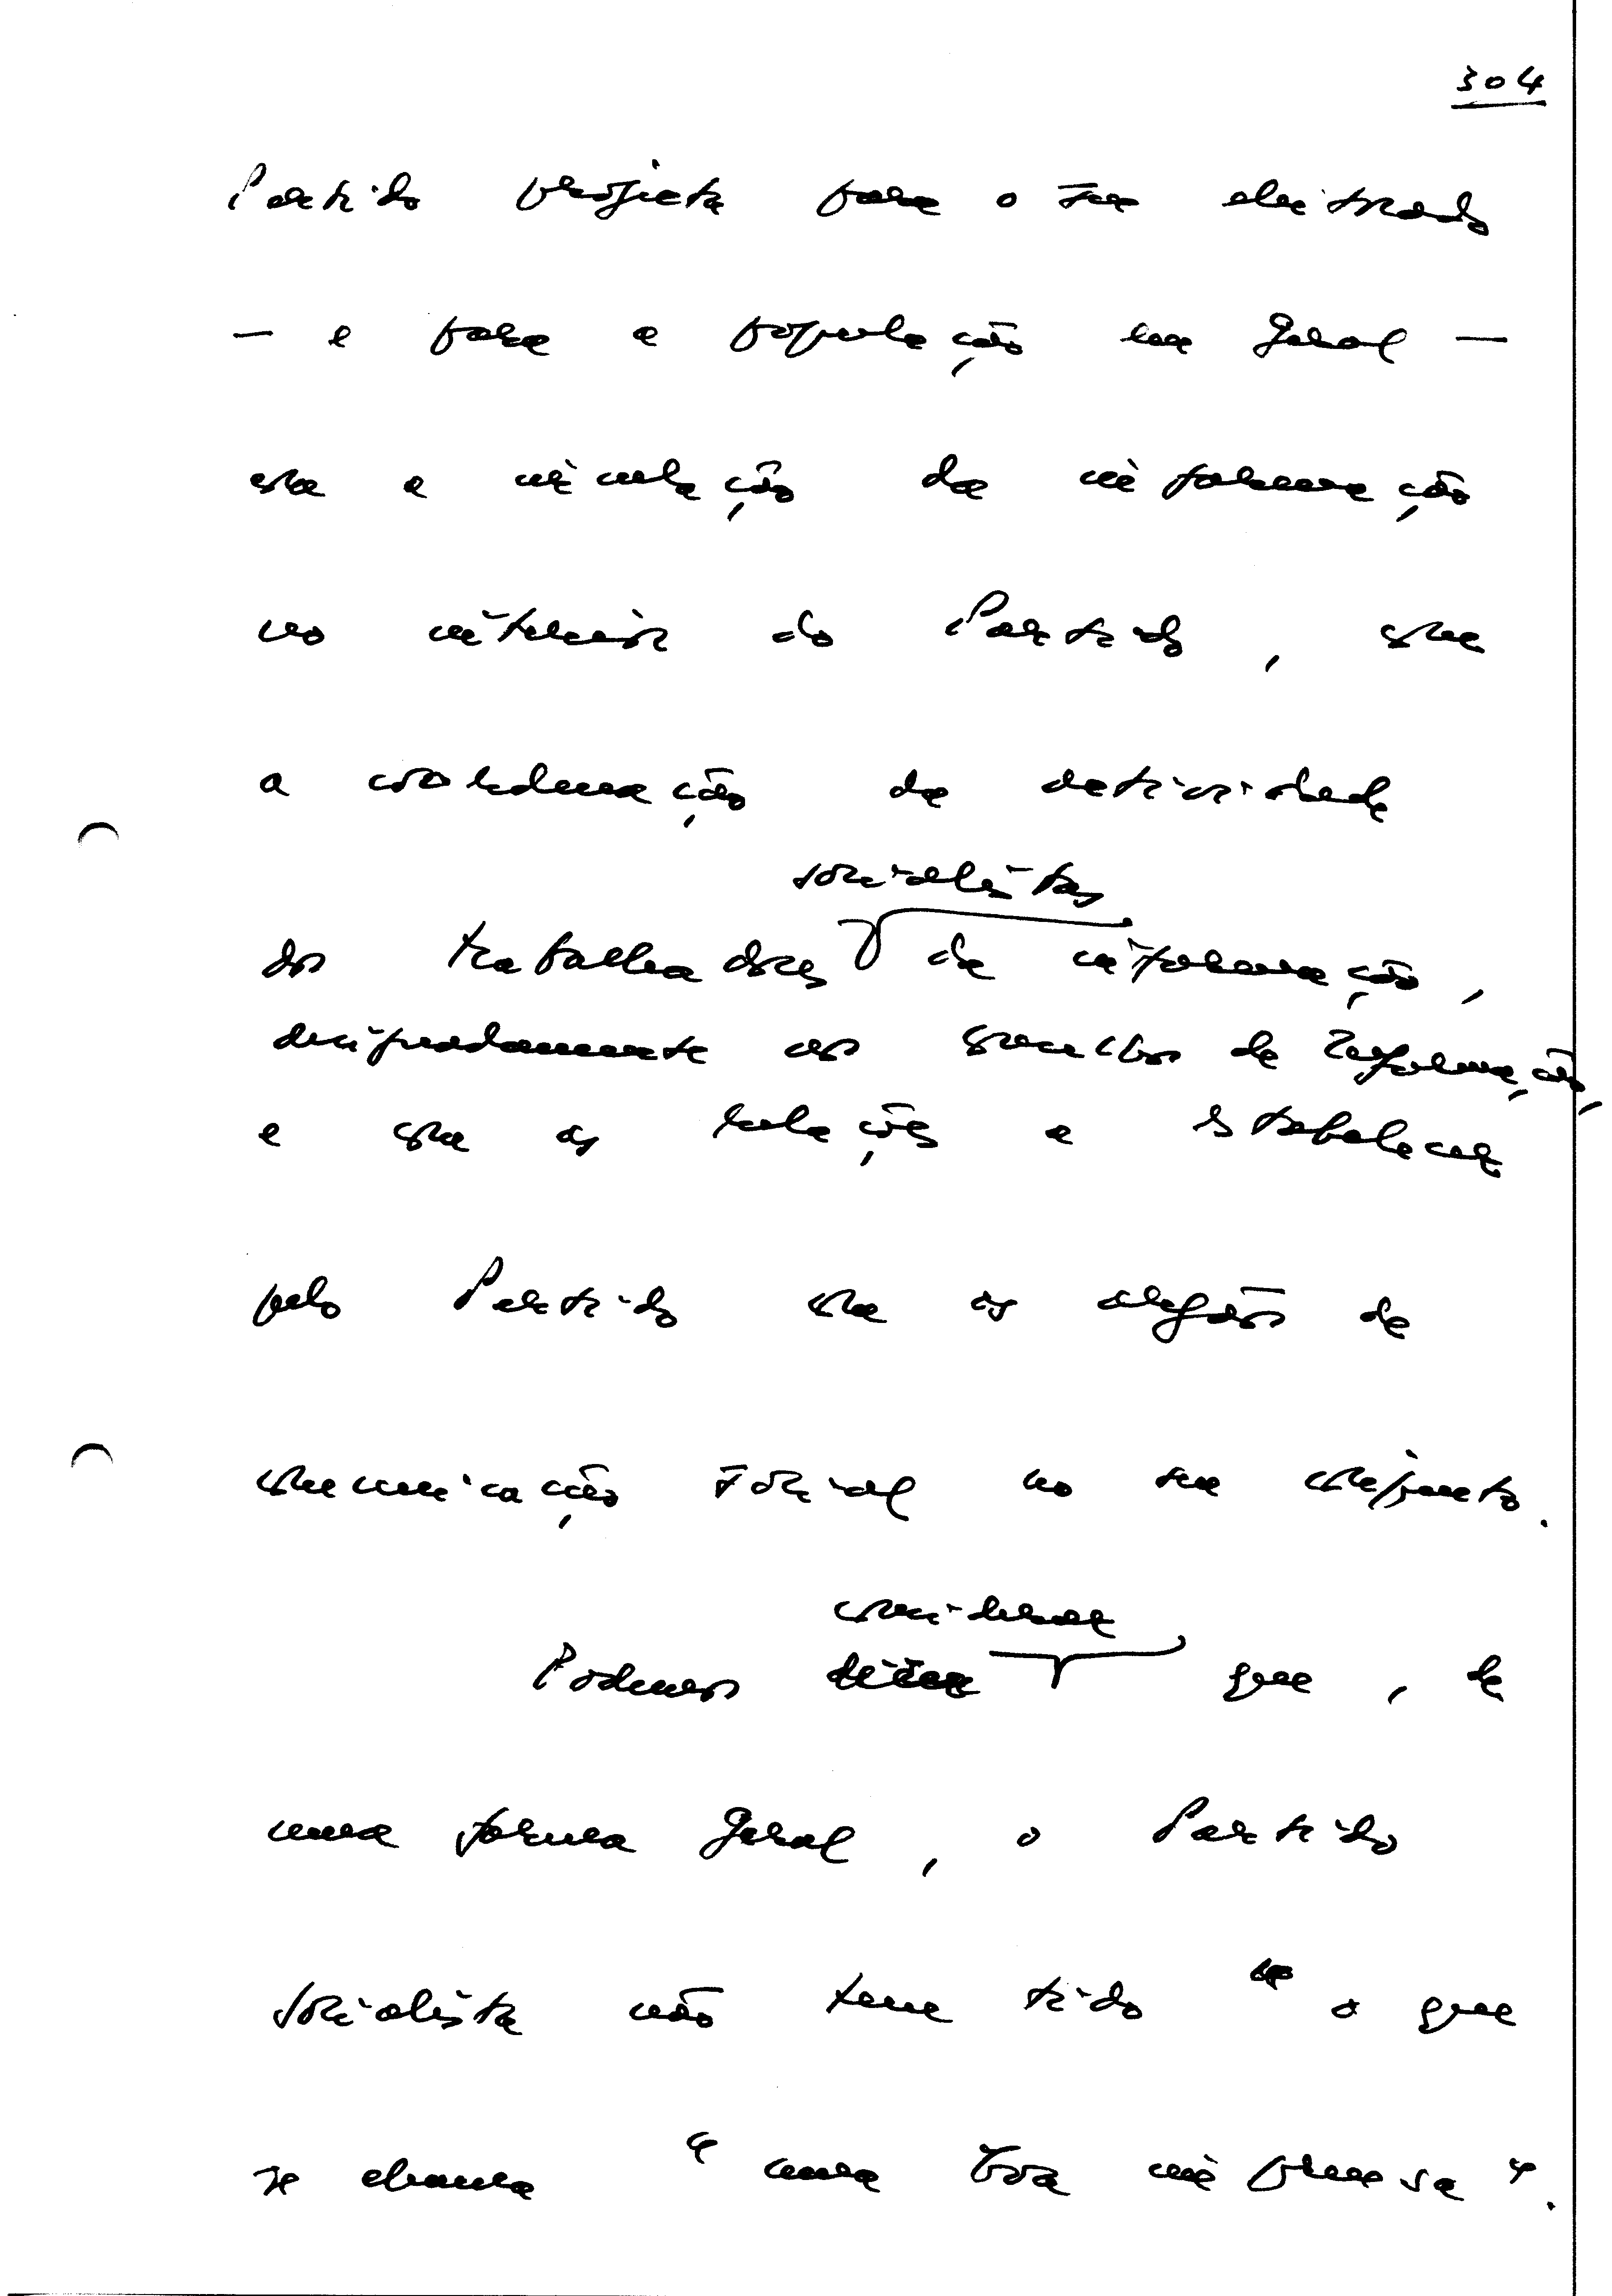 304
Partido projecta para o seu eleitorado
— e para a população em geral —
com a circulação da informação
no interior do Partido, com
a coordenação da actividade
socialistas
dos trabalhadores da informação,
designadamente nos
e com as relações a estabelecer
pelo Partido com os orgãos de
comunicação social no seu conjunto.
considerar
Podemos dizer que, de
uma forma geral, o Partido
Socialista não tem tido o que
se chama "uma boa imprensa".